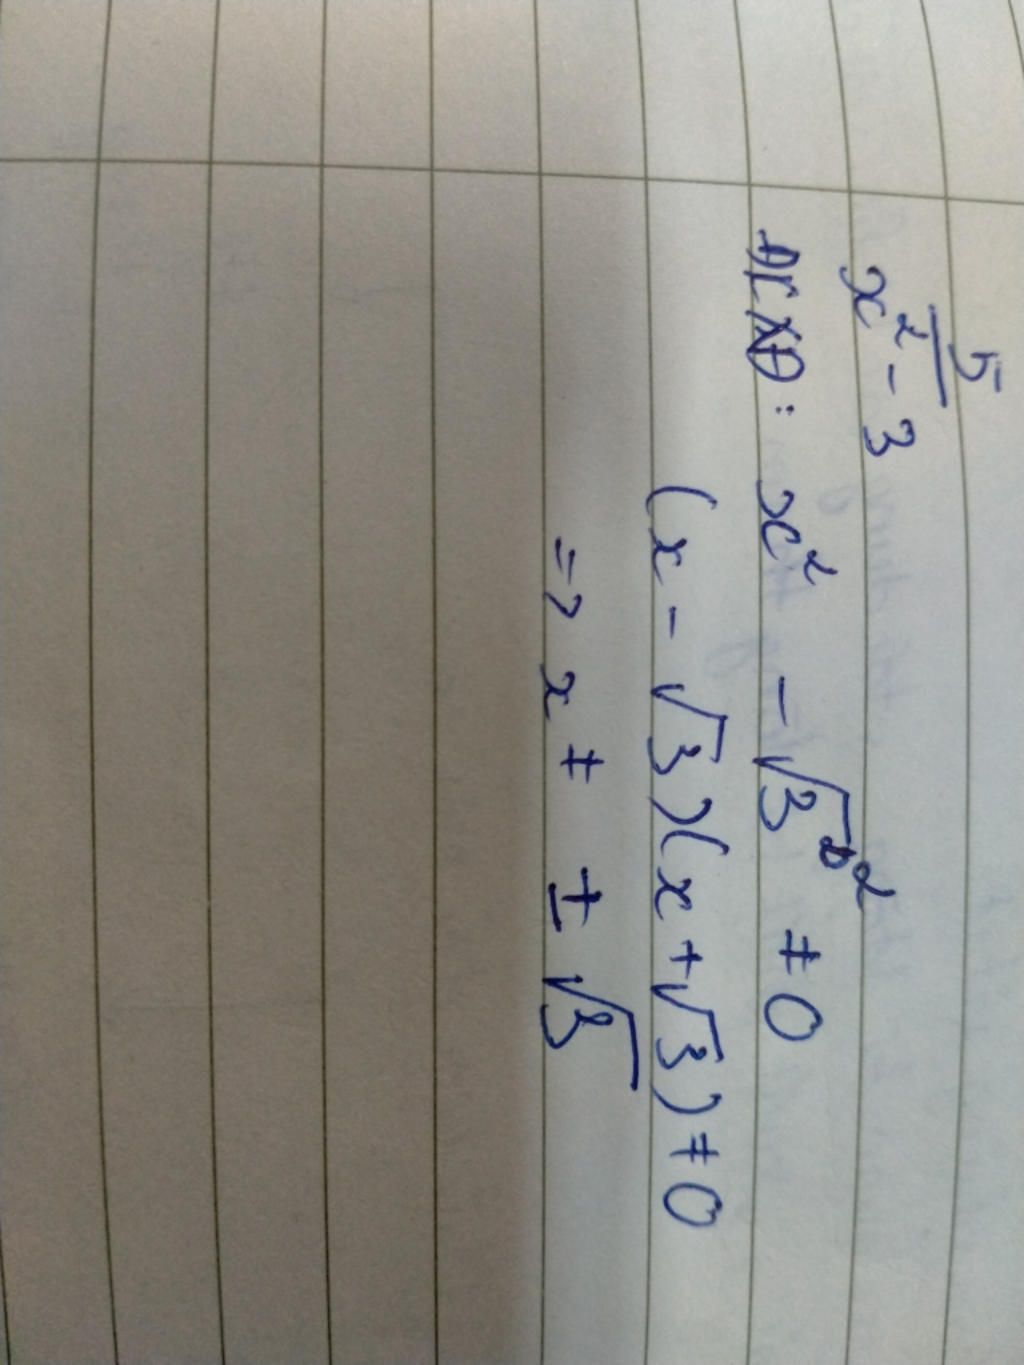 5
x² - 3
ĐKXĐ: x² - √3² ≠ 0
(x - √3)(x + √3) ≠ 0
=> x ≠ ± √3